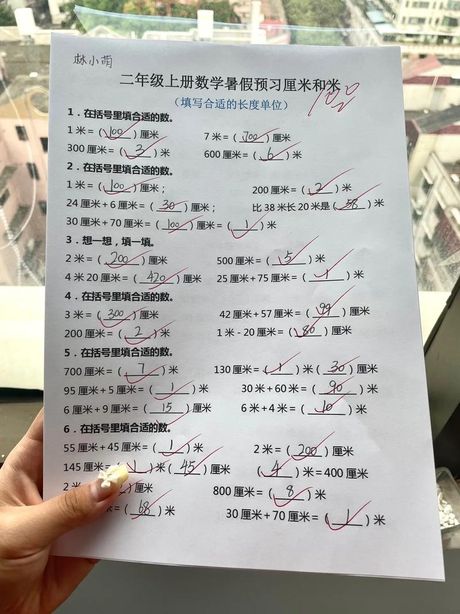 林小萌
二年级上册数学暑假预习厘米和米
(填写合适的长度单位)
100
1.在括号里填合适的数。
1 米=( 100 )厘米 7 米=( 700 )厘米
300 厘米=( 3 )米 600 厘米=( 6 )米
2.在括号里填合适的数。
1 米=( 100 )厘米; 200 厘米=( 2 )米
24 厘米+6 厘米=( 30 )厘米; 比 38 米长 20 米是( 58 )米
30 厘米+70 厘米=( 100 )厘米=( 1 )米
3.想一想,填一填。
2 米=( 200 )厘米 500 厘米=( 5 )米
4 米 20 厘米=( 420 )厘米 25 厘米+75 厘米=( 1 )米
4.在括号里填合适的数。
3 米=( 300 )厘米 42 厘米+57 厘米=( 99 )厘米
200 厘米=( 2 )米 1 米-20 厘米=( 80 )厘米
5.在括号里填合适的数。
700 厘米=( 7 )米 130 厘米=( 1 )米( 30 )厘米
95 厘米+5 厘米=( 1 )米 30 米+60 米=( 90 )米
6 厘米+9 厘米=( 15 )厘米 6 米+4 米=( 10 )米
6.在括号里填合适的数。
55 厘米+45 厘米=( 1 )米 2 米=( 200 )厘米
145 厘米=( 1 )米( 45 )厘米 ( 4 )米=400 厘米
2 米 )厘米 800 厘米=( 8 )米
米=( 68 )米 30 厘米+70 厘米=( 1 )米